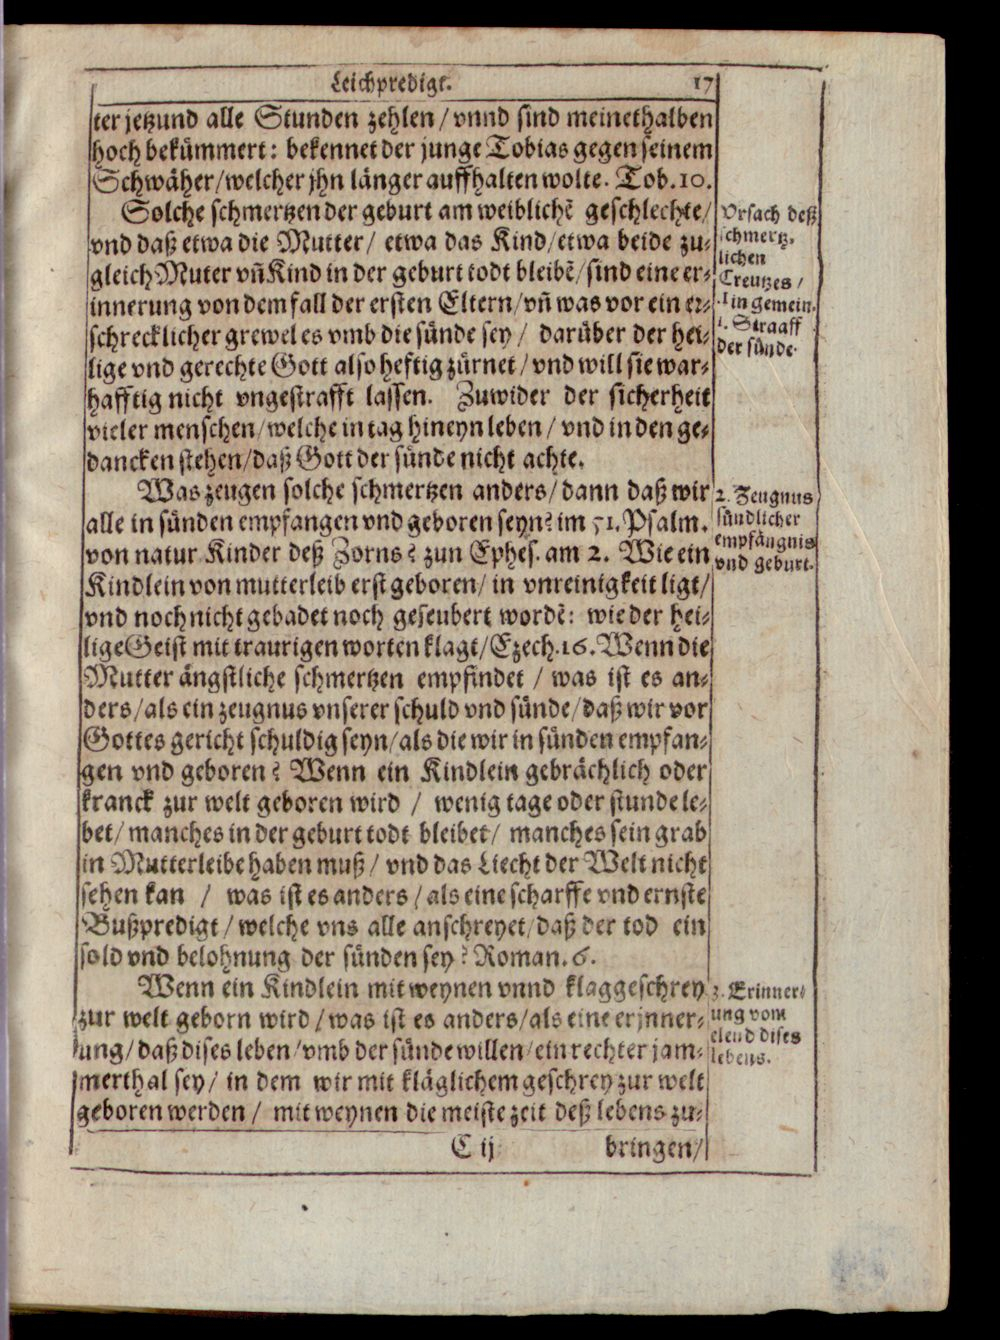 Leichpredigt. 17
ter jetzund alle Stunden zehlen / vnnd sind meinethalben
hoch bekümmert: bekennet der junge Tobias gegen seinem
Schwäher / welcher jhn länger auffhalten wolte. Tob. 10.
Solche schmertzen der geburt am weiblichẽ geschlechte /
vnd daß etwa die Mutter / etwa das Kind / etwa beide zu-
gleich Muter vñ Kind in der geburt todt bleibẽ / sind eine er-
innerung von dem fall der ersten Eltern / vñ was vor ein er-
schrecklicher grewel es vmb die sünde sey / darüber der hei-
lige vnd gerechte Gott also heftig zürnet / vnd will sie war-
hafftig nicht vngestrafft lassen. Zuwider der sicherheit
vieler menschen / welche in tag hineyn leben / vnd in den ge-
dancken stehen / daß Gott der sünde nicht achte.
Vrsach deß
schmertz-
lichen
Creutzes /
I in gemein.
1. Straaff
der sünde.
Was zeugen solche schmertzen anders / dann daß wir
alle in sünden empfangen vnd geboren seyn? im 51. Psalm.
von natur Kinder deß Zorns? zun Ephes. am 2. Wie ein
Kindlein von mutterleib erst geboren / in vnreinigkeit ligt /
vnd noch nicht gebadet noch geseubert wordẽ: wie der hei-
lige Geist mit traurigen worten klagt / Ezech. 16. Wenn die
Mutter ängstliche schmertzen empfindet / was ist es an-
ders / als ein zeugnus vnserer schuld vnd sünde / daß wir vor
Gottes gericht schuldig seyn / als die wir in sünden empfan-
gen vnd geboren? Wenn ein Kindlein gebrächlich oder
kranck zur welt geboren wird / wenig tage oder stunde le-
bet / manches in der geburt todt bleibet / manches sein grab
in Mutterleibe haben muß / vnd das Liecht der Welt nicht
sehen kan / was ist es anders / als eine scharffe vnd ernste
Bußpredigt / welche vns alle anschreyet / daß der tod ein
sold vnd belohnung der sünden sey? Roman. 6.
2. Zeugnus
sündlicher
empfängnis
vnd geburt.
Wenn ein Kindlein mit weynen vnnd klaggeschrey
zur welt geborn wird / was ist es anders / als eine erjnner-
ung / daß dises leben / vmb der sünde willen / ein rechter jam-
merthal sey / in dem wir mit kläglichem geschrey zur welt
geboren werden / mit weynen die meiste zeit deß lebens zu-
3. Erinner-
ung vom
elend dises
lebens.
C ij bringen /